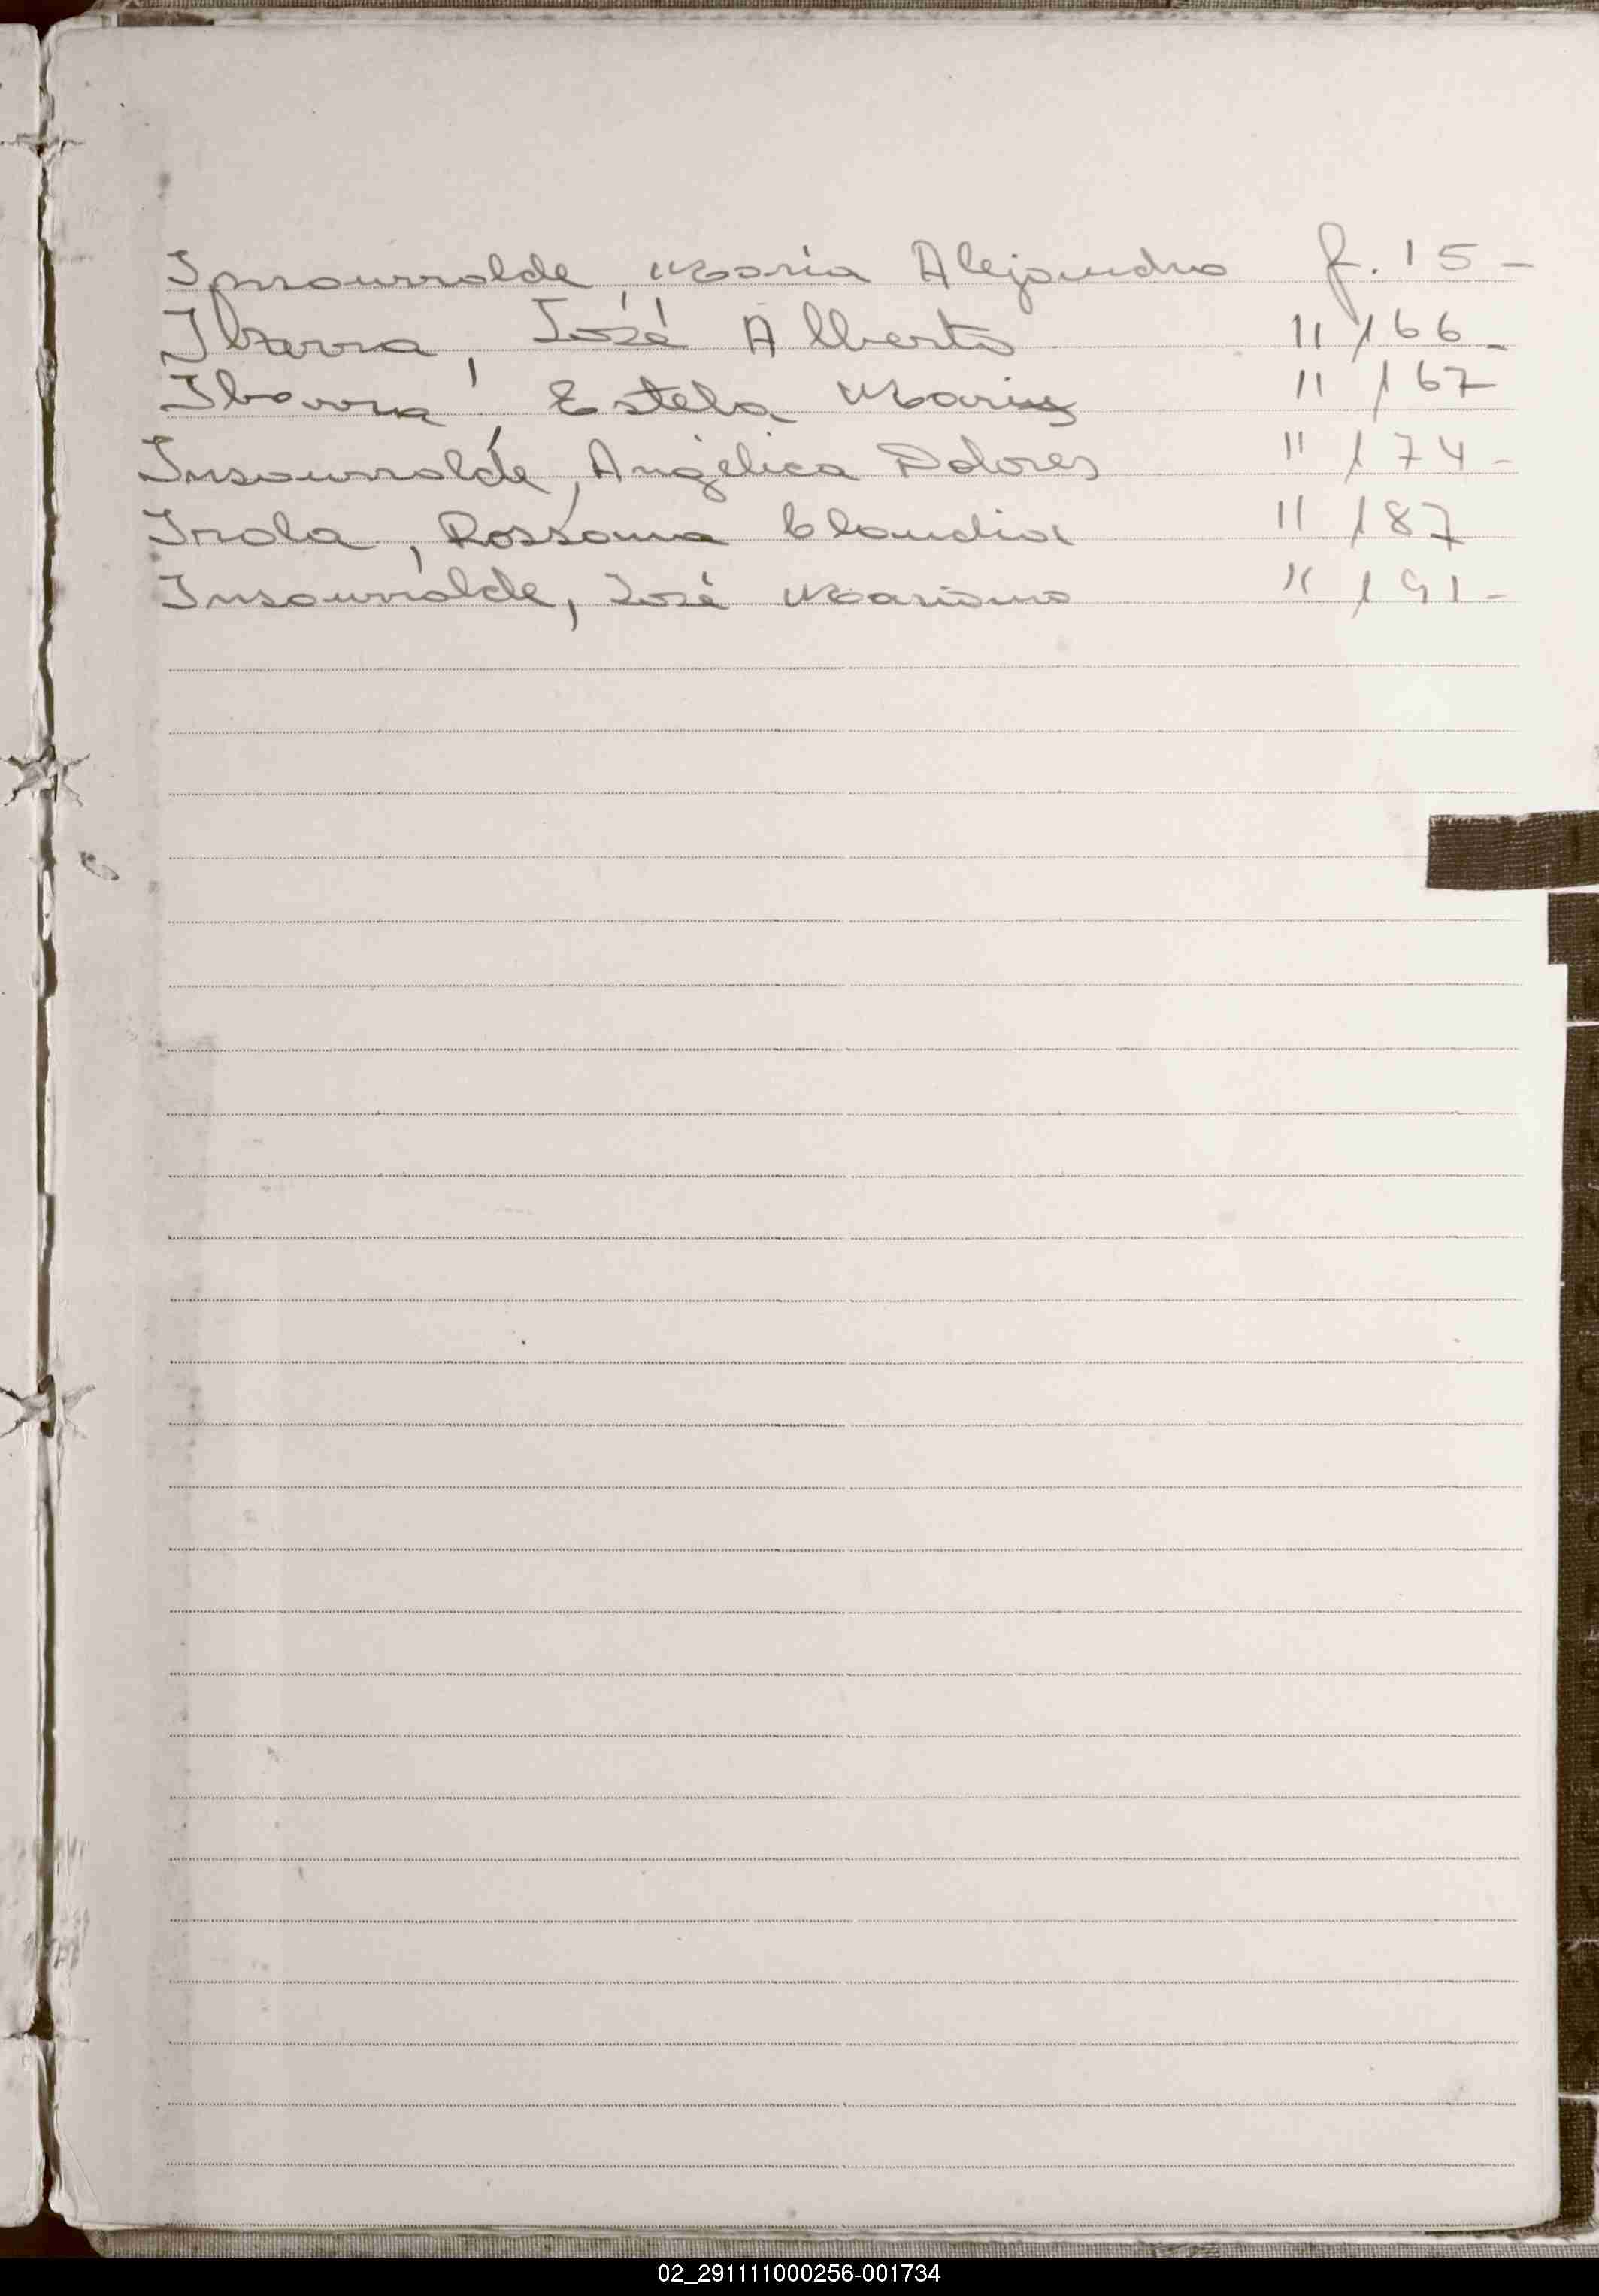 Insaurralde, María Alejandra f. 15 -
Ibarra, José Alberto " 166 -
Ibarra, Estela Maris " 167
Insaurralde, Angélica Dolores " 174 -
Irala, Rossana Claudia " 187
Insaurralde, José Mariano " 191 -
02_291111000256-001734